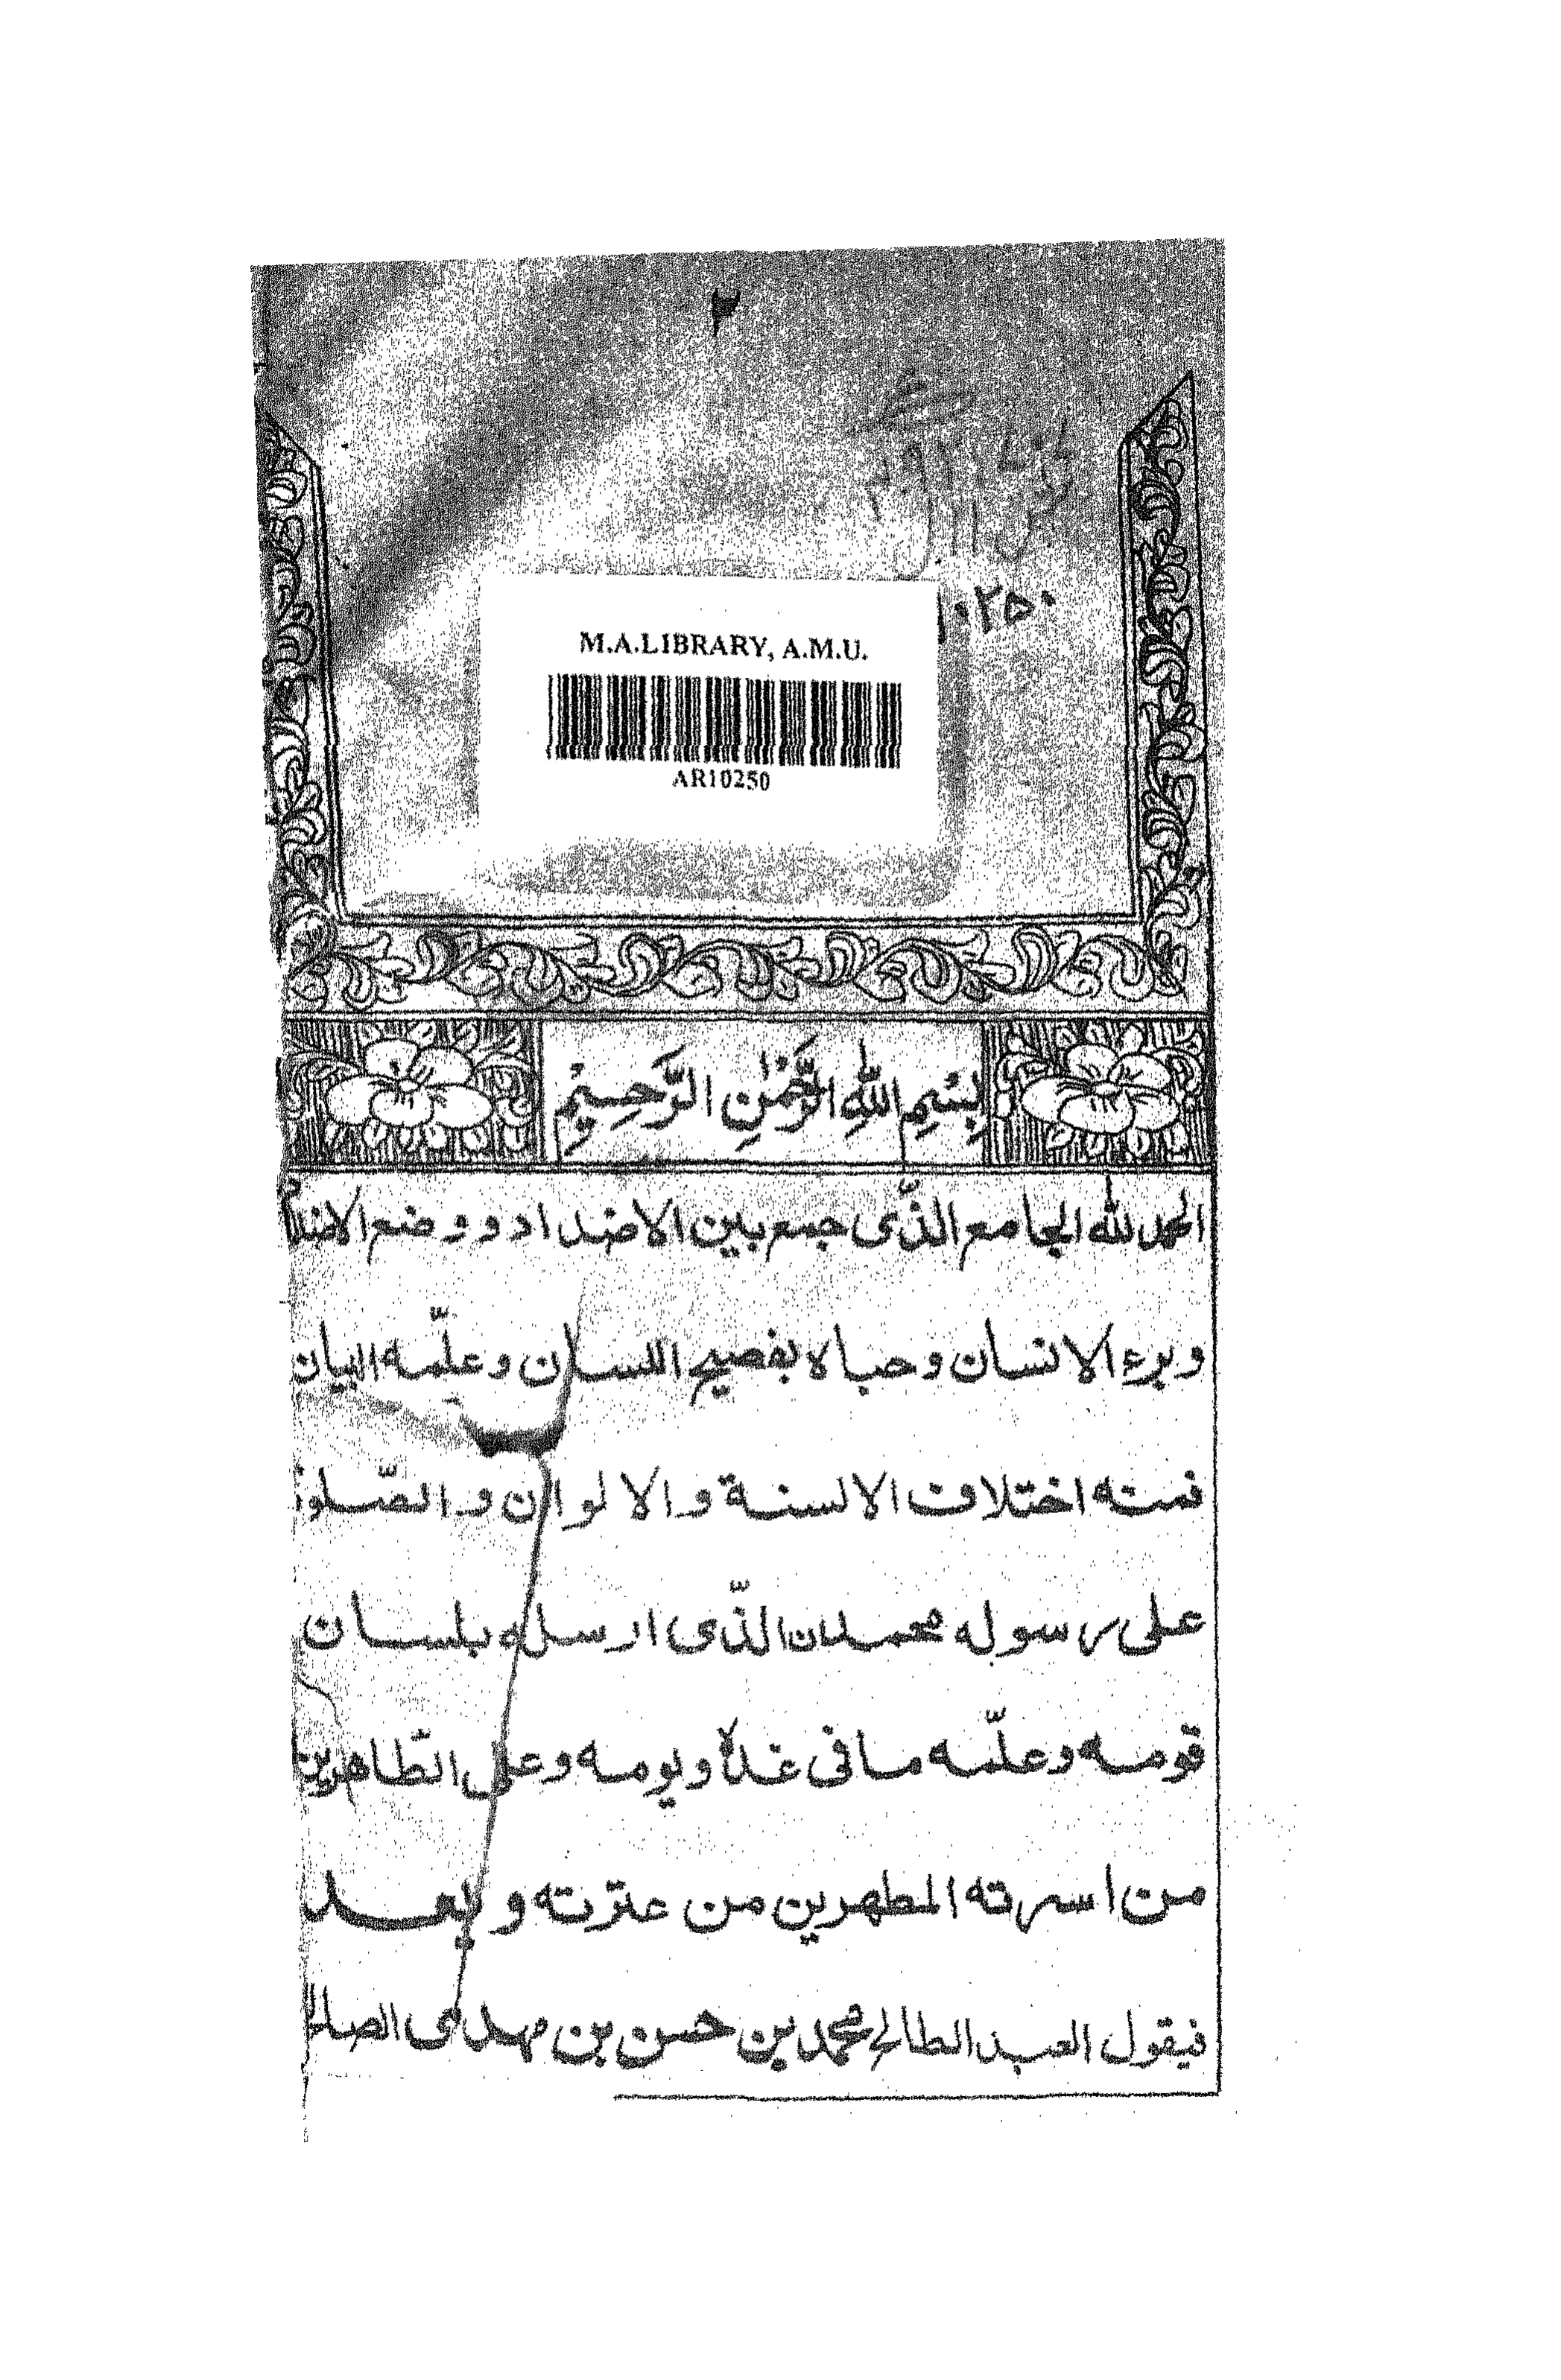 ٢
١٠٢٥٠
M.A.LIBRARY, A.M.U.
AR10250
بِسْمِ اللهِ الرَّحْمٰنِ الرَّحِيْمِ
الحمد لله الجامع الذّى جمع بين الاضداد و وضع
وبرء الانسان وحباه بفصيح اللسان وعلّمه البيان
فمنه اختلاف الالسنة والالوان والصّلوة
على رسوله محمدن الذّى ارسله بلسان
قومه وعلّمه ما فى غده ويومه وعلى الطّاهرين
من اسرته المطهرين من عترته وبعد
فيقول العبد الطالح محمد بن حسن بن مهدى الصالح